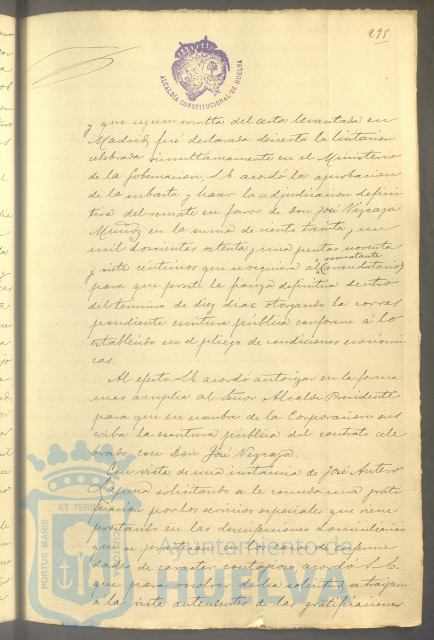 295
ALCALDÍA CONSTITUCIONAL DE HUELVA
y que segun resulta del acta levantada en
Madrid, fué declarada desierta la licitacion
celebrada simultaneamente en el Ministerio
de la Gobernacion, S.E. acordó la aprobacion
de la subasta y hacer la adjudicacion defini-
tiva del remate en favor de Don José Vizcaya
Muñoz en la suma de ciento treinta y un
mil doscientas setenta y una pesetas noventa
y siete céntimos que se requiera al (arrendatario) rematante
para que preste la fianza definitiva dentro
del termino de diez dias otorgando la corres
pondiente escritura pública conforme á lo
establecido en el pliego de condiciones económi-
cas.
Al efecto S.E. acordó autorizar en la forma
mas amplia al Señor Alcalde Presidente
para que en nombre de la Corporacion sus
criba la escritura pública del contrato cele
brado con Don José Vizcaya.
Con vista de una instancia de José Antero
Laguna solicitando se le conceda una grati
ficacion por los servicios especiales que viene
prestando en las desinfecciones domiciliarias
que se practican en los casos de enferme
dades de caracter contagioso, acordó S.E.
que para resolver dicha solicitud se traigan
a la vista antecedentes de las gratificaciones
PORTUS MARIS ET TERRÆ CUSTODIA
Ayuntamiento de
HUELVA